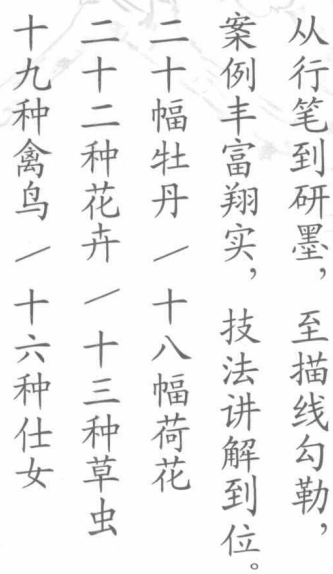 从行笔到研墨，至描线勾勒，
案例丰富翔实，技法讲解到位。
二十幅牡丹/十八幅荷花
二十二种花卉/十三种草虫
十九种禽鸟/十六种仕女